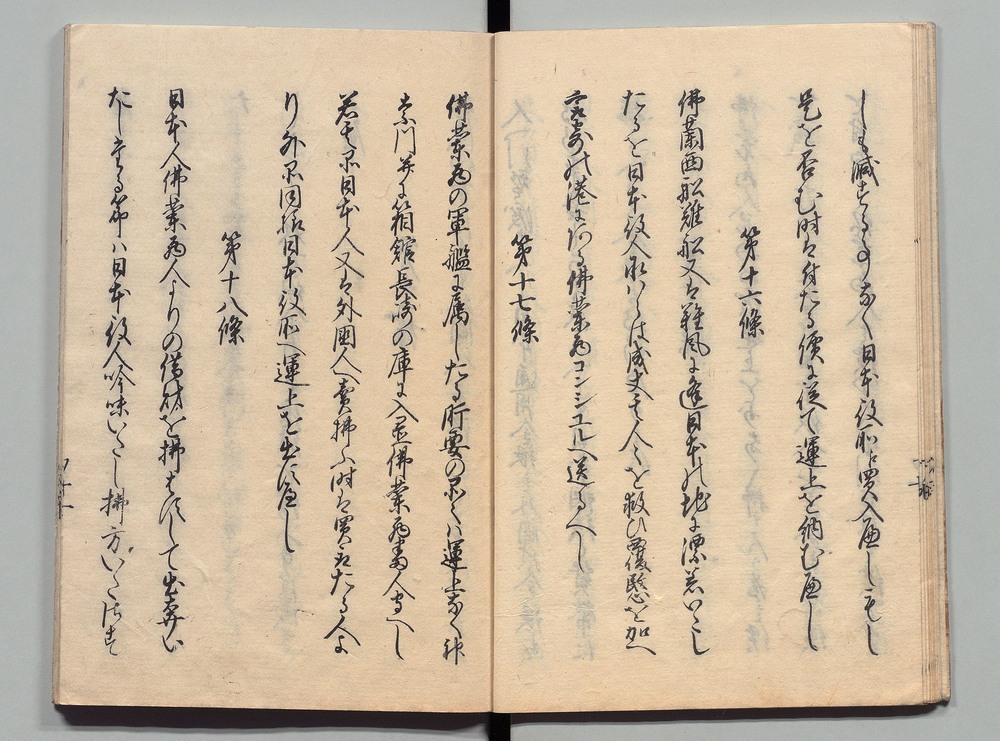 しも減する事なく日本役所に買入へし もし
是を否む時は付たる價に従て運上を納む へし
第十六條
佛蘭西船難船又は難風に逢日本の地に漂着いたし
たるを日本役人承ハらは成丈其人々を救ひ 覆慇を加へ
最寄の港にある佛蘭西コンシユルへ送るへし
第十七條
佛蘭西の軍艦に属したる肝要の品々ハ運上なく神
奈川并に箱館長崎の庫に入置佛蘭西番人守へし
若其品日本人又は外國人へ賣拂ふ時は買取たる人よ
り外品同様日本役所へ運上を出すへし
第十八條
日本人佛蘭西人よりの借財を拂はすして出奔い
たし候節ハ日本役人吟味いたし拂方いたさす